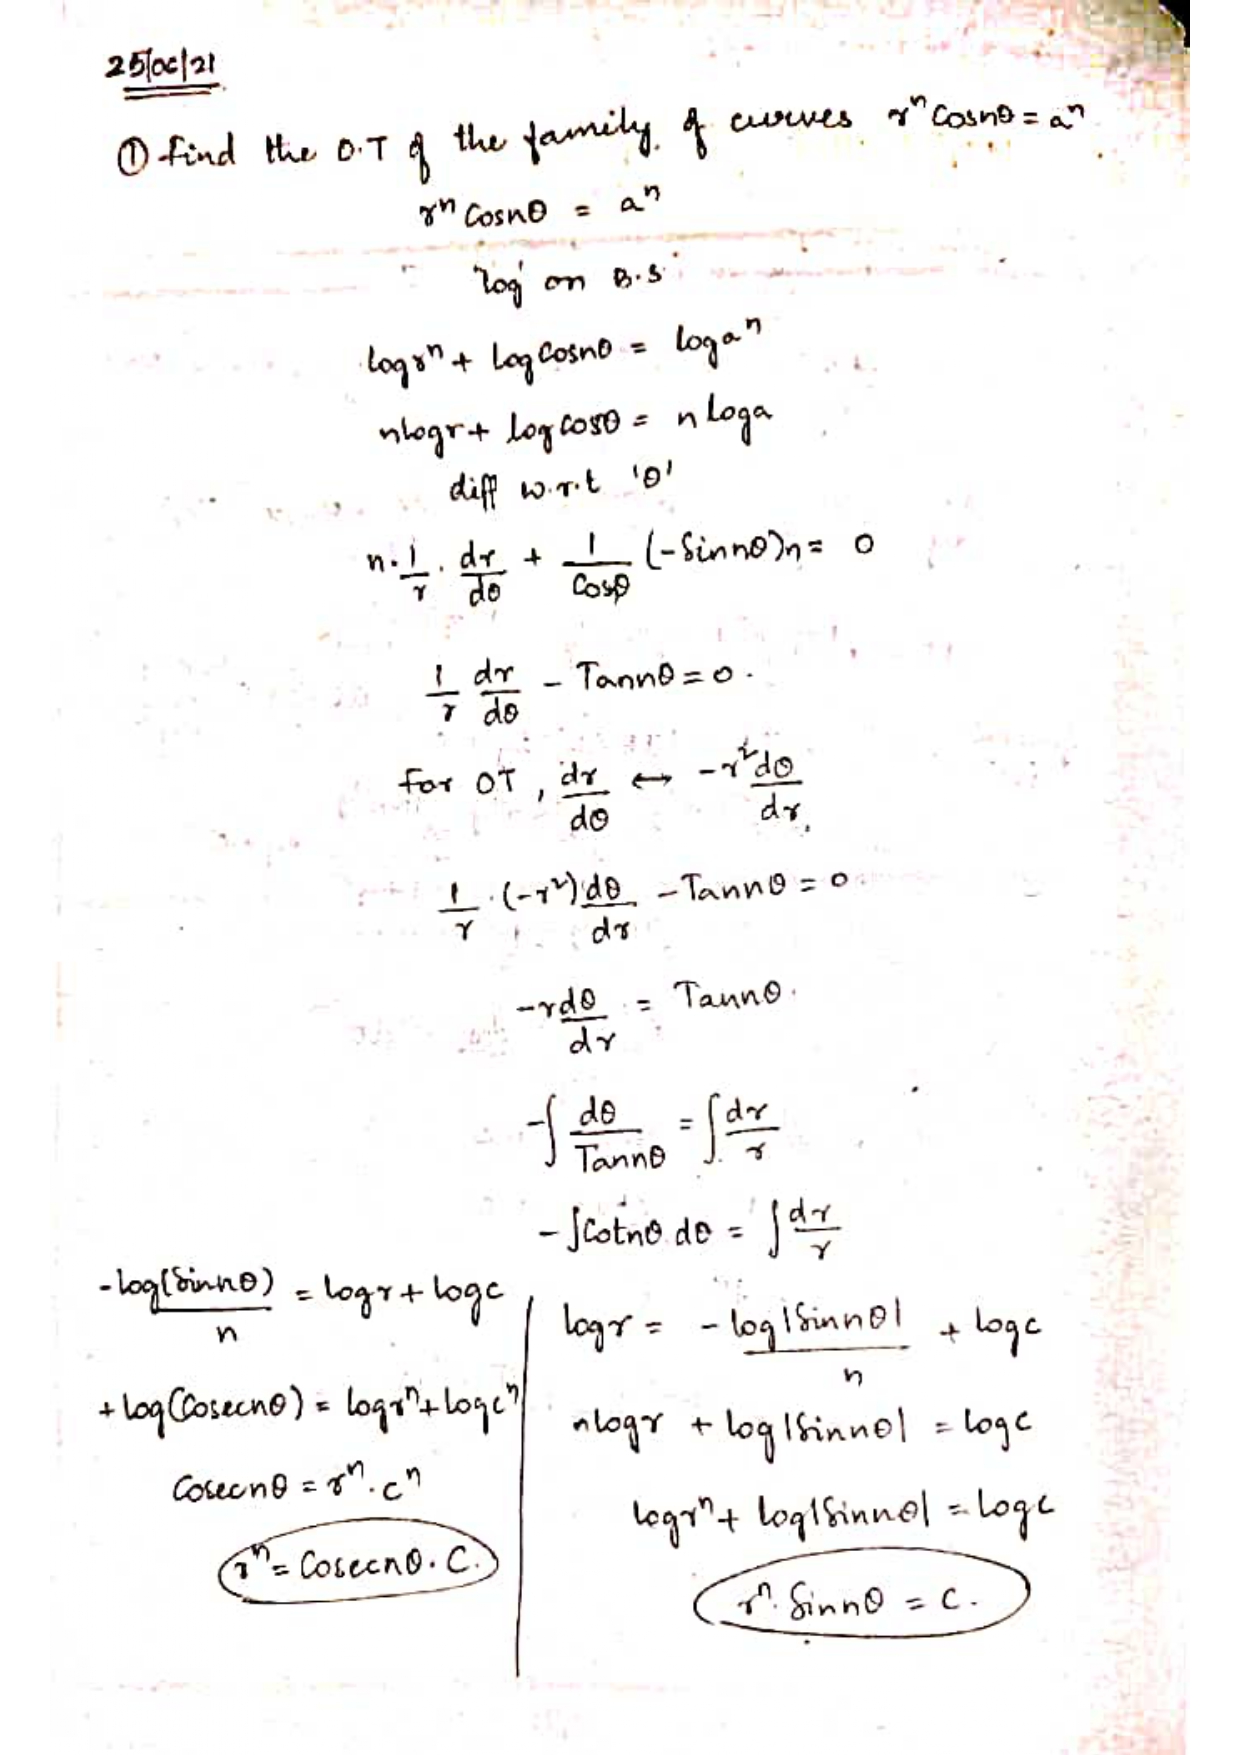 25/oc/21
① find the O.T of the family of curves rⁿ Cosnθ = aⁿ
rⁿ Cosnθ = aⁿ
'log' on B.S
logrⁿ + log Cosnθ = logaⁿ
nlogr + log cosθ = n loga
diff w.r.t 'θ'
n. 1/r . dr/dθ + 1/Cosθ (-Sinnθ)n = 0
1/r dr/dθ - Tannθ = 0.
for OT, dr/dθ ↔ -r² dθ/dr
1/r . (-r²) dθ/dr - Tannθ = 0
-r dθ/dr = Tannθ.
-∫ dθ/Tannθ = ∫ dr/r
- ∫Cotnθ dθ = ∫ dr/r
-log(Sinnθ)/n = logr + logc
+ log(Cosecnθ) = logrⁿ + logcⁿ
Cosecnθ = rⁿ . cⁿ
rⁿ = Cosecnθ . C.
logr = - log|Sinnθ|/n + logc
nlogr + log|Sinnθ| = logc
logrⁿ + log|Sinnθ| = logc
rⁿ. Sinnθ = c.